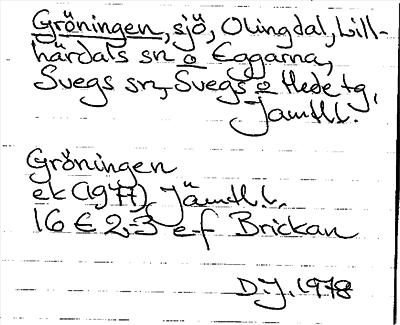 Gröningen, sjö, Olingdal, Lill-
härdals sn o Eggarna,
Svegs sn, Svegs o Hede tg,
Jämtl l.
Gröningen
ek (1977) Jämtl l.
16 E 2-3 e-f Brickan
D.J. 1978